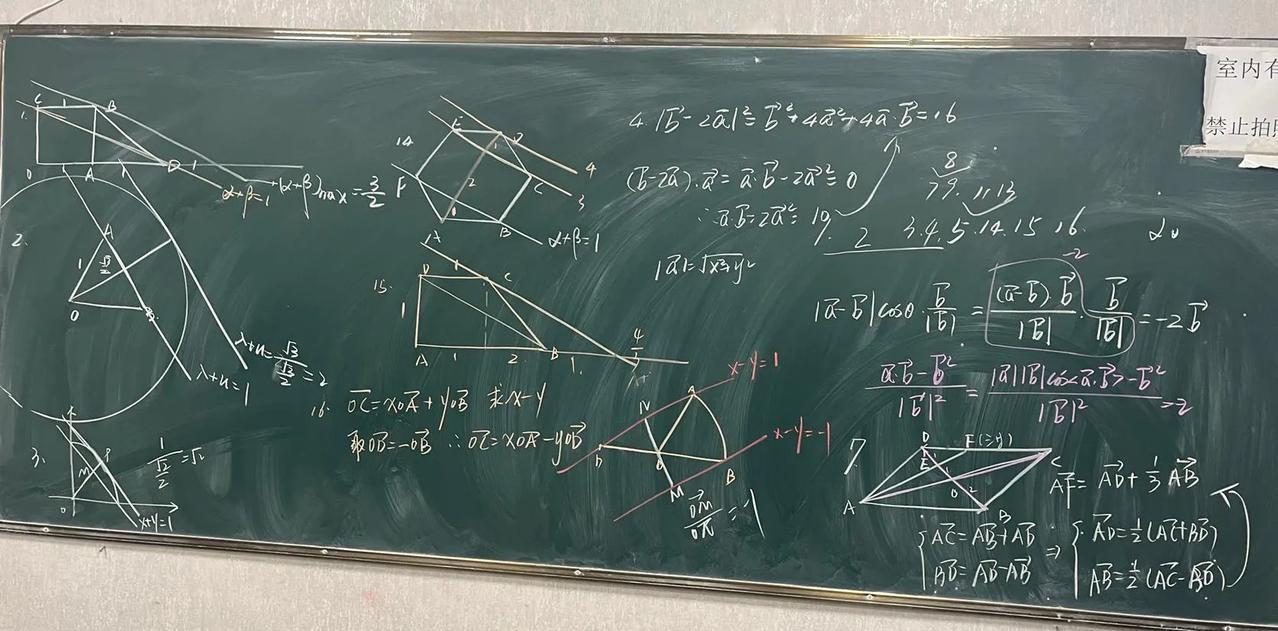 室内有
禁止拍照
1.
C 1 B
O A D 1
α+β=1
(α+β)max=3/2
2.
A
1 √3/2
O B
λ+u=√3/(√3/2)=2
λ+u=1
3.
M P
1/(√2/2)=√2
O
x+y=1
14
E D
1
F 2 C
A B
4
3
α+β=1
15.
D 1 C
1
A 1 2. B 1.
4/3
16. OC=xOA+yOB 求x-y
取OB=-OB ∴OC=xOA-yOB
x-y=1
x-y=-1
N A
D O B
M
OM/ON=-1
4. |b-2a|²=b²+4a²+4a·b=16
(b-2a)·a=a·b-2a²=0
∴a·b=2a²=
|a|=√x²+y²
8
79. 11 13
2 3.4.5.14.15 16.
|a-b|cosθ·b/|b|=(a-b)·b/|b|·b/|b|=-2b
-2
(a·b-b²)/|b|²=(|a||b|cos<a·b>-b²)/|b|²=-2
7
D F
E C
O 2
A B
AF=AD+1/3AB
{AC=AB+AD ⇒ {AD=1/2(AC+BD)
BD=AD-AB AB=1/2(AC-BD)